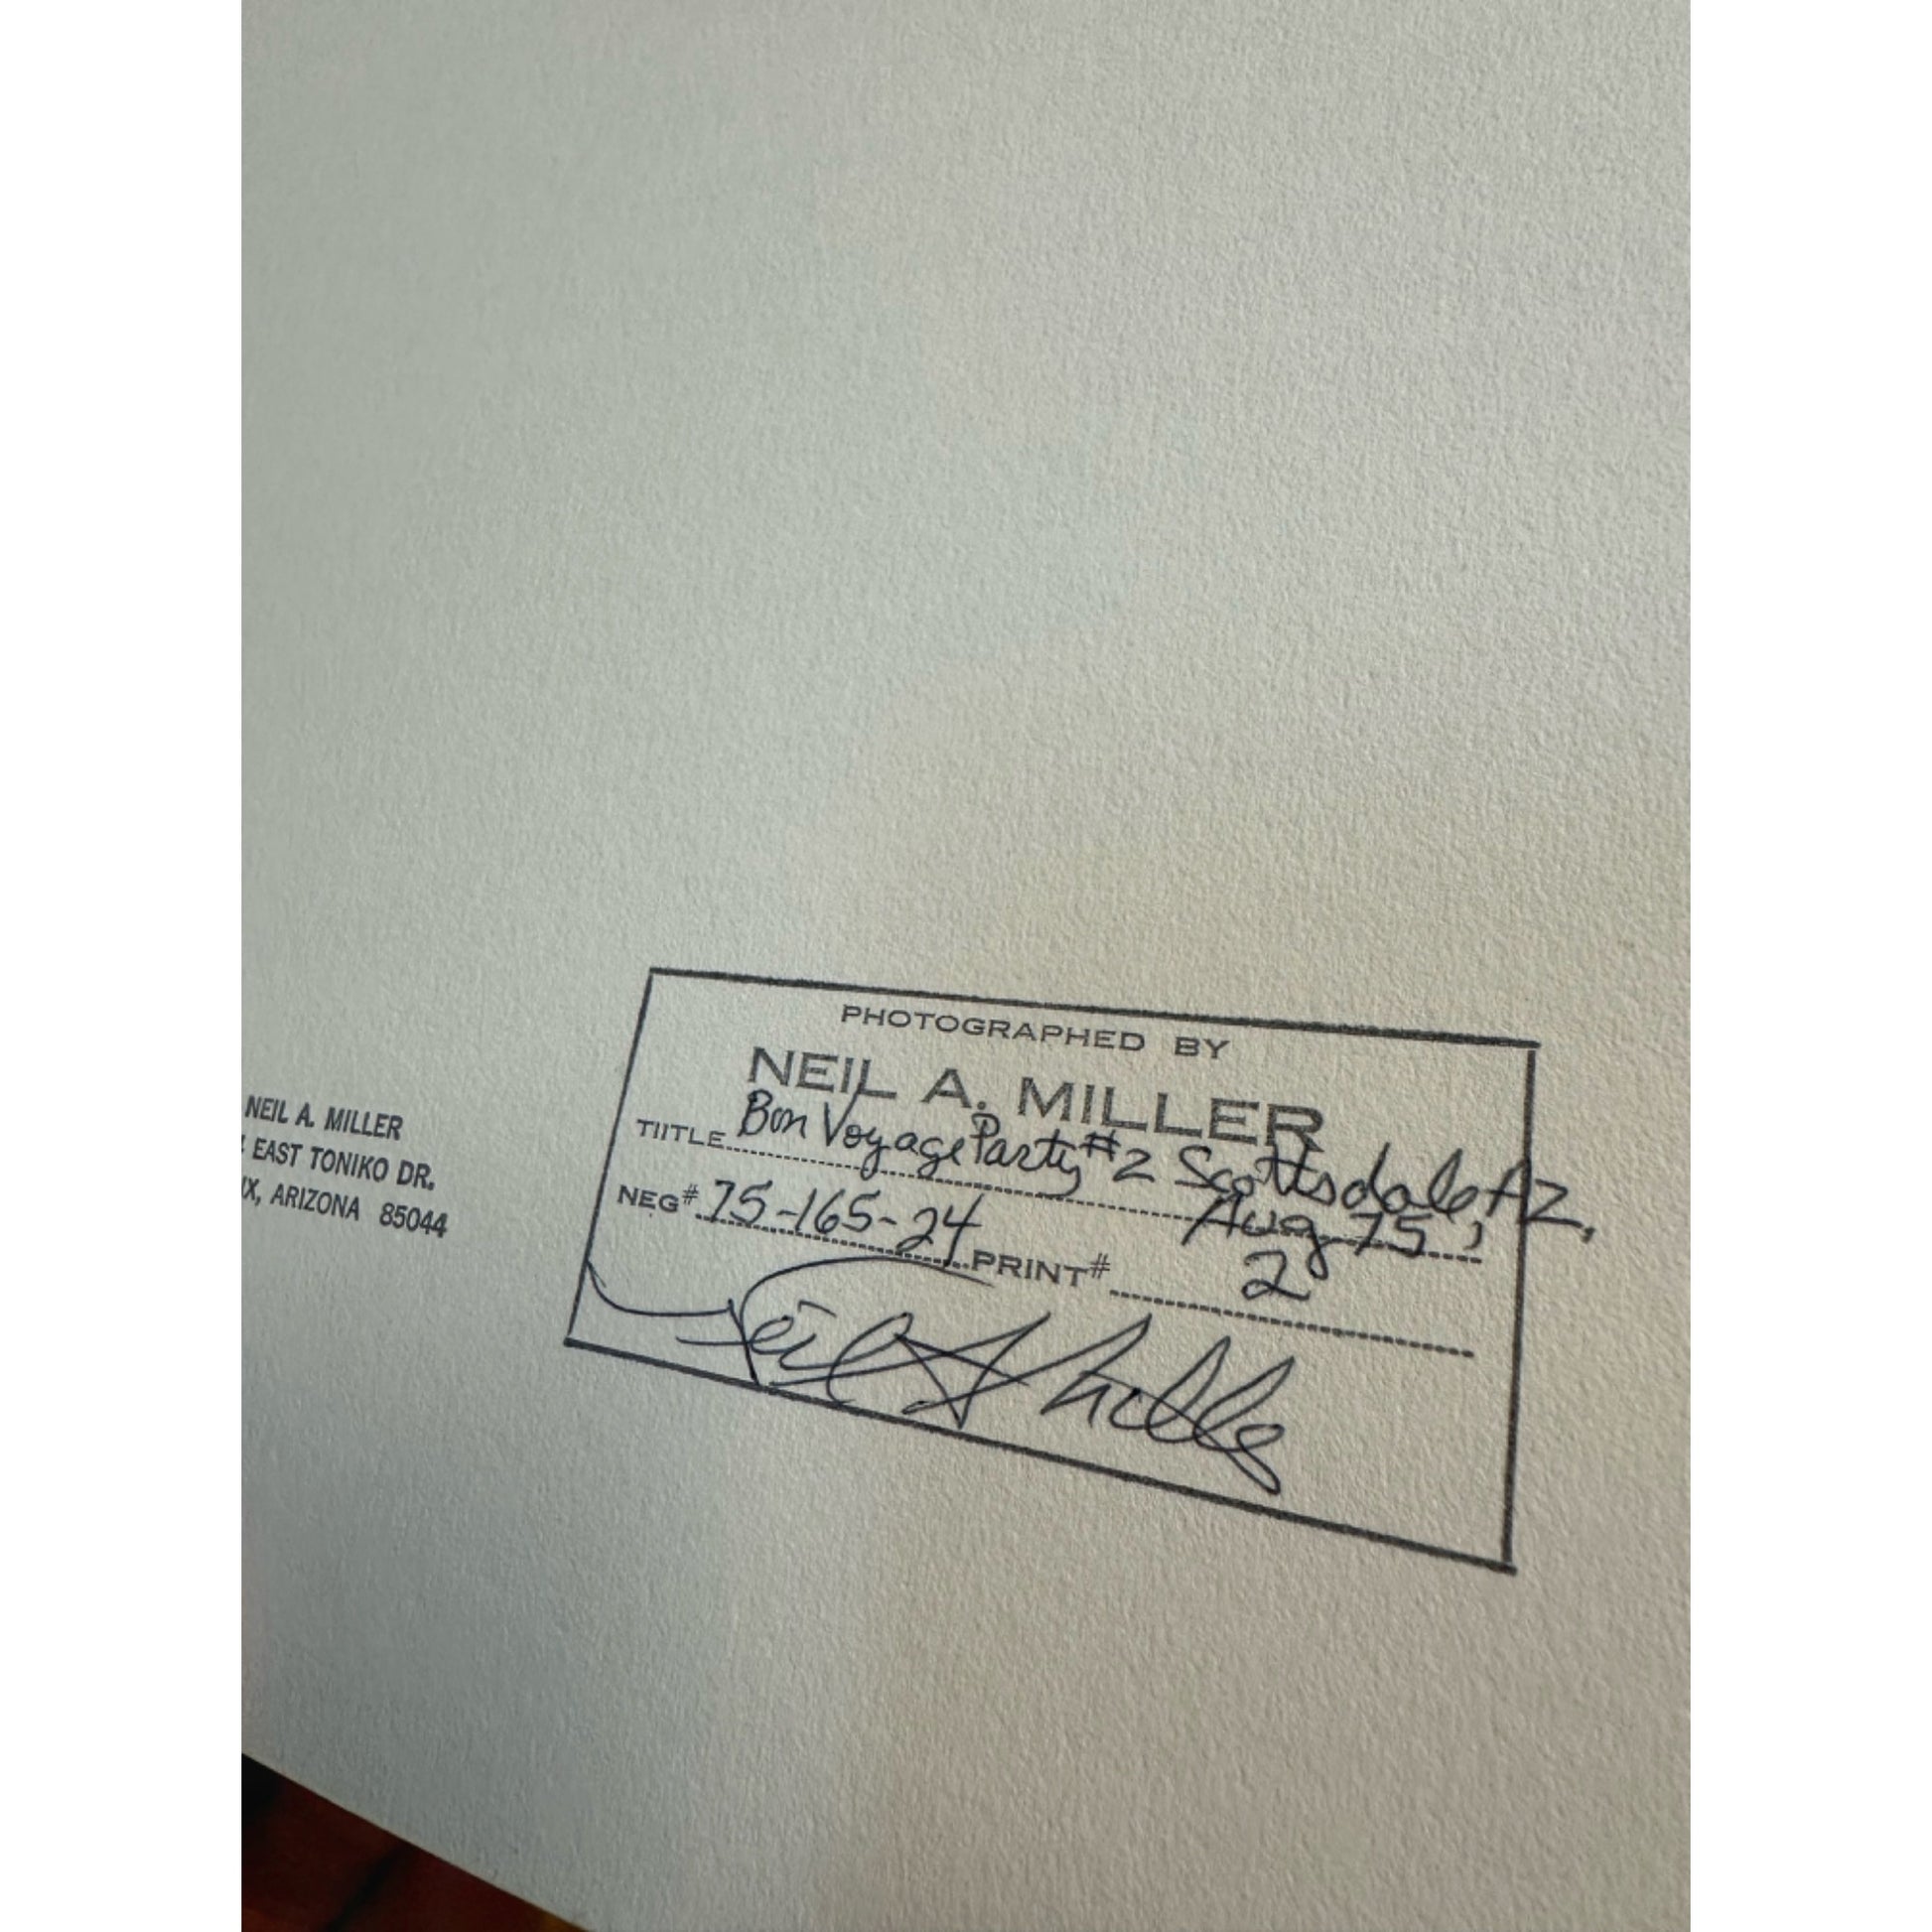 NEIL A. MILLER
EAST TONIKO DR.
X, ARIZONA 85044
PHOTOGRAPHED BY
NEIL A. MILLER
TIITLE Bon Voyage Party #2 Scottsdale, AZ,
Aug 75,
NEG# 75-165-24 PRINT# 2
Neil A Miller